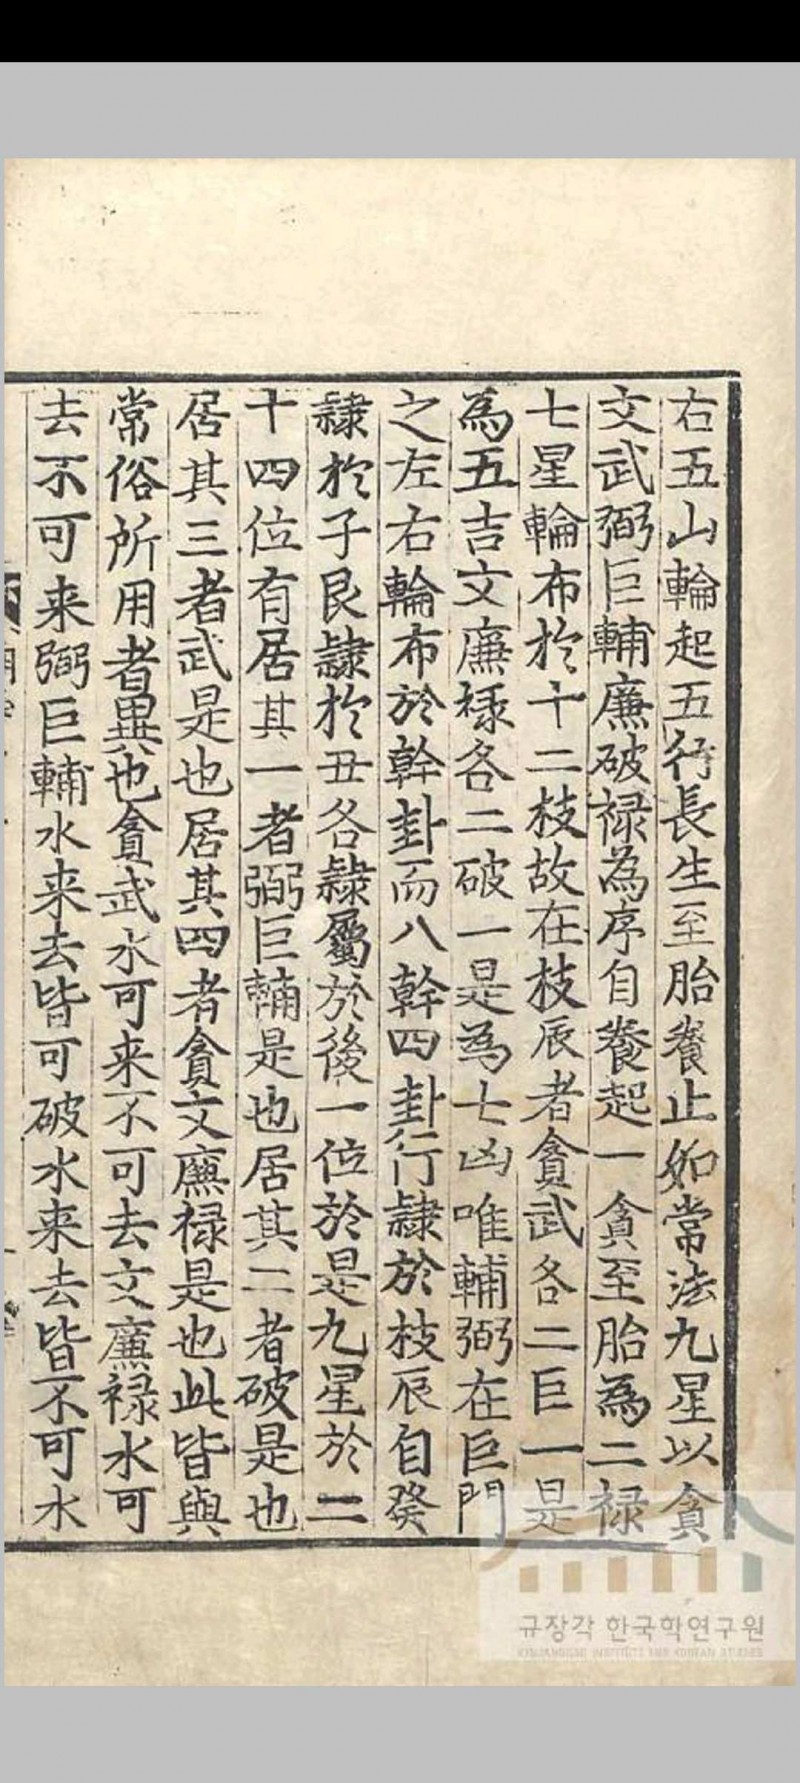 右五山輪起五行長生至胎養止如常法九星以貪
文武弼巨輔廉破禄為序自養起一貪至胎為二禄
七星輪布於十二枝故在枝辰者貪武各二巨一是
為五吉文廉禄各二破一是為七凶唯輔弼在巨門
之左右輪布於幹卦而八幹四卦行隷於枝辰自癸
隷於子艮隷於丑各隷屬於後一位於是九星於二
十四位有居其一者弼巨輔是也居其二者破是也
居其三者武是也居其四者貪文廉禄是也此皆與
常俗所用者異也貪武水可来不可去文廉禄水可
去不可来弼巨輔水来去皆可破水来去皆不可水
규장각 한국학연구원
KYUJANGGAK INSTITUTE FOR KOREAN STUDIES